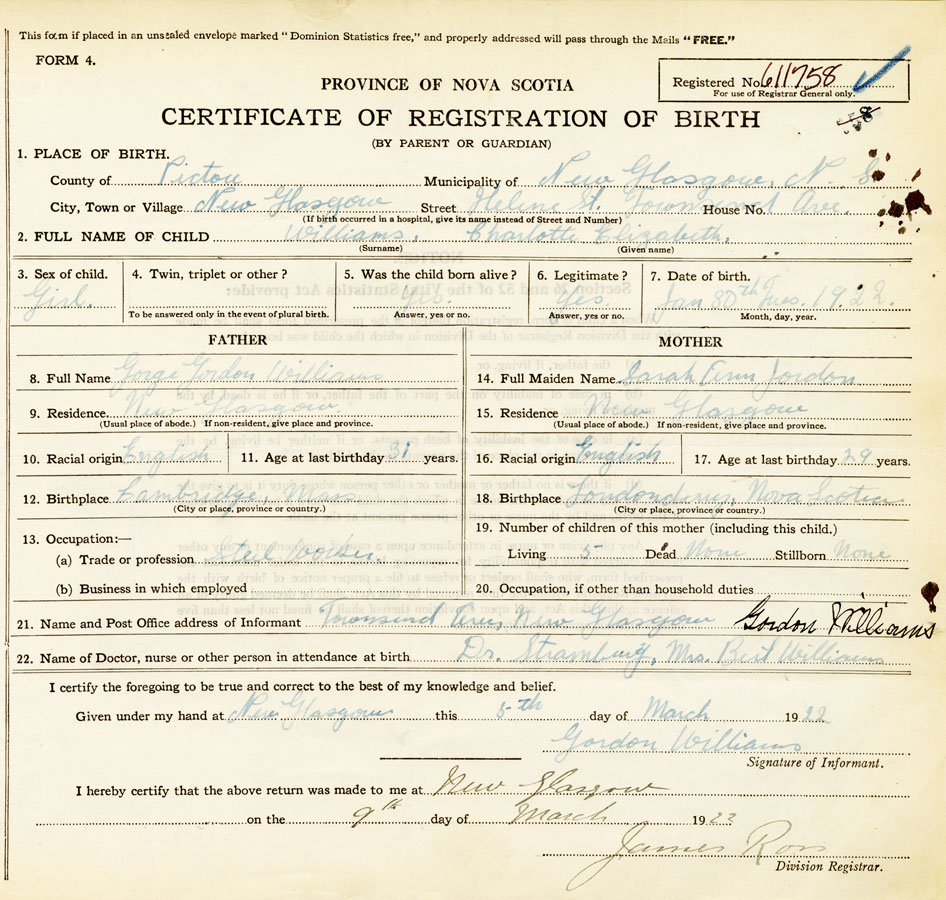 This form if placed in an unsealed envelope marked "Dominion Statistics free," and properly addressed will pass through the Mails "FREE."
FORM 4.
PROVINCE OF NOVA SCOTIA
Registered No. 611758
For use of Registrar General only.
CERTIFICATE OF REGISTRATION OF BIRTH
(BY PARENT OR GUARDIAN)
1. PLACE OF BIRTH.
County of Pictou Municipality of New Glasgow, N. S.
City, Town or Village New Glasgow Street Helene St. Townsend Ave. House No.
(If birth occurred in a hospital, give its name instead of Street and Number)
2. FULL NAME OF CHILD Williams, Charlotte Elizabeth.
(Surname) (Given name)
3. Sex of child. 4. Twin, triplet or other? 5. Was the child born alive? 6. Legitimate? 7. Date of birth.
Girl. Yes. Yes Jan 30th Tues. 1922.
To be answered only in the event of plural birth. Answer, yes or no. Answer, yes or no. Month, day, year.
FATHER MOTHER
8. Full Name Gorge Gordon Williams 14. Full Maiden Name Sarah Ann Jordon
9. Residence New Glasgow 15. Residence New Glasgow
(Usual place of abode.) If non-resident, give place and province. (Usual place of abode.) If non-resident, give place and province.
10. Racial origin English 11. Age at last birthday 31 years. 16. Racial origin English 17. Age at last birthday 29 years.
12. Birthplace Cambridge, Mass 18. Birthplace Nova Scotia
(City or place, province or country.) (City or place, province or country.)
13. Occupation:— 19. Number of children of this mother (including this child.)
(a) Trade or profession Steel worker Living 5 Dead None Stillborn None
(b) Business in which employed 20. Occupation, if other than household duties
21. Name and Post Office address of Informant Townsend Ave, New Glasgow Gordon Williams
22. Name of Doctor, nurse or other person in attendance at birth Dr. Mrs. Bert Williams
I certify the foregoing to be true and correct to the best of my knowledge and belief.
Given under my hand at New Glasgow this 5th day of March 1922
Gordon Williams
Signature of Informant.
I hereby certify that the above return was made to me at New Glasgow
on the 9th day of March 1922
James Ross
Division Registrar.